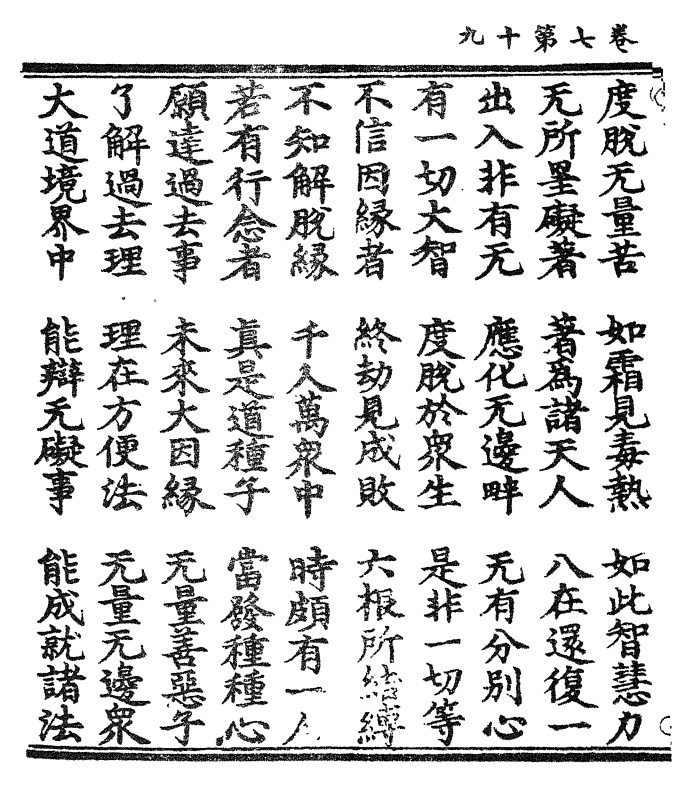 卷七第十九
度脫无量苦　如霜見毒熱　如此智慧力
无所罣礙著　著爲諸天人　八在還復一
出入非有无　應化无邊畔　无有分別心
有一切大智　度脫於衆生　是非一切等
不信因縁者　終劫見成敗　六根所結縛
不知解脫縁　千人萬衆中　時頗有一人
若有行念者　眞是道種子　當發種種心
願達過去事　未來大因縁　无量善惡子
了解過去理　理在方便法　无量无邊衆
大道境界中　能辯无礙事　能成就諸法